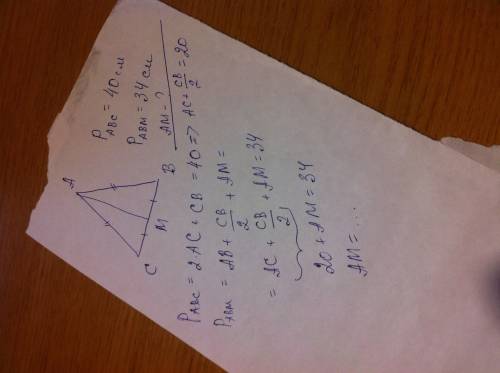 A
C
M
B
P_ABC = 40 см
P_ABM = 34 см
AM - ?
P_ABC = 2AC + CB = 40 => AC + CB/2 = 20
P_ABM = AB + CB/2 + AM =
= AC + CB/2 + AM = 34
20 + AM = 34
AM = ...